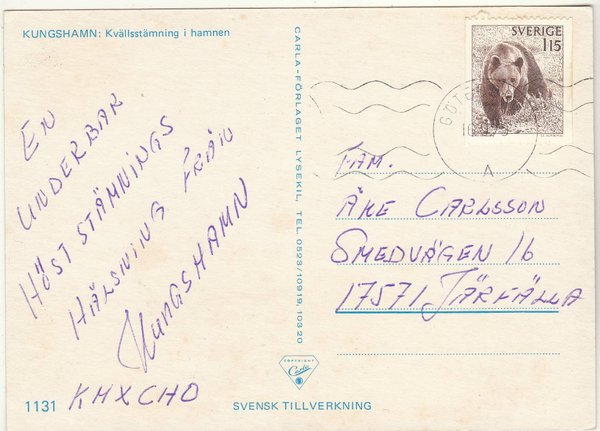 KUNGSHAMN: Kvällsstämning i hamnen
EN
UNDERBAR
HÖST STÄMNINGS
HÄLSNING FRÅN
KUNGSHAMN
KMXCHO
1131
CARLA-FÖRLAGET LYSEKIL, TEL. 0523/109 19, 103 20
COPYRIGHT
Carla
SVENSK TILLVERKNING
SVERIGE
115
FAM.
ÅKE CARLSSON
SMEDVÄGEN 16
17571 JÄRFÄLLA